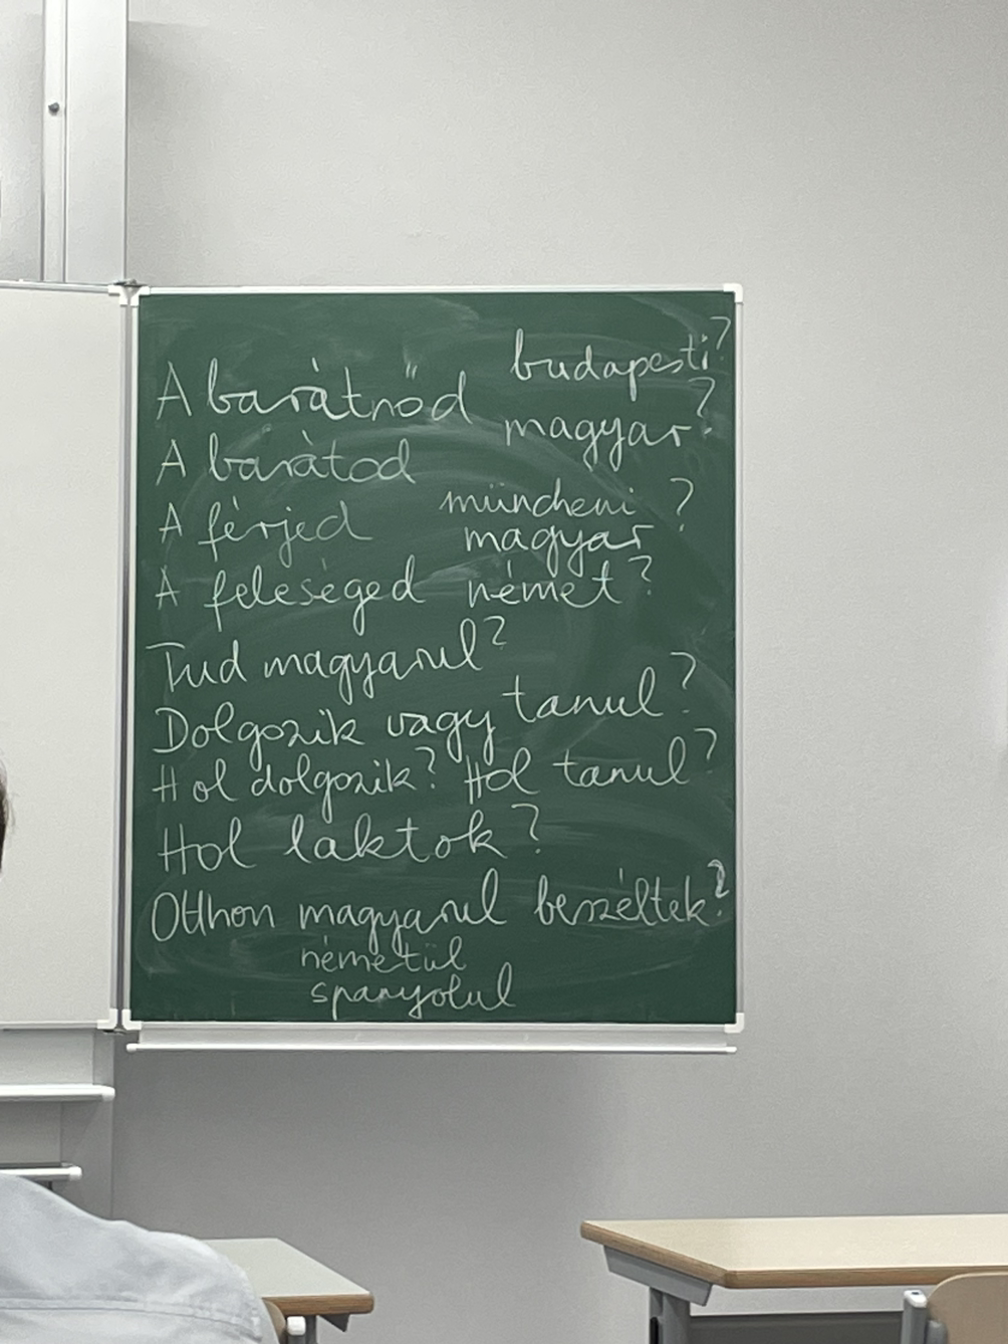 budapesti?
A barátnőd
magyar?
A barátod
müncheni ?
A férjed
magyar
A feleséged német?
Tud magyarul?
Dolgozik vagy tanul?
Hol dolgozik? Hol tanul?
Hol laktok?
Otthon magyarul beszéltek?
németül
spanyolul